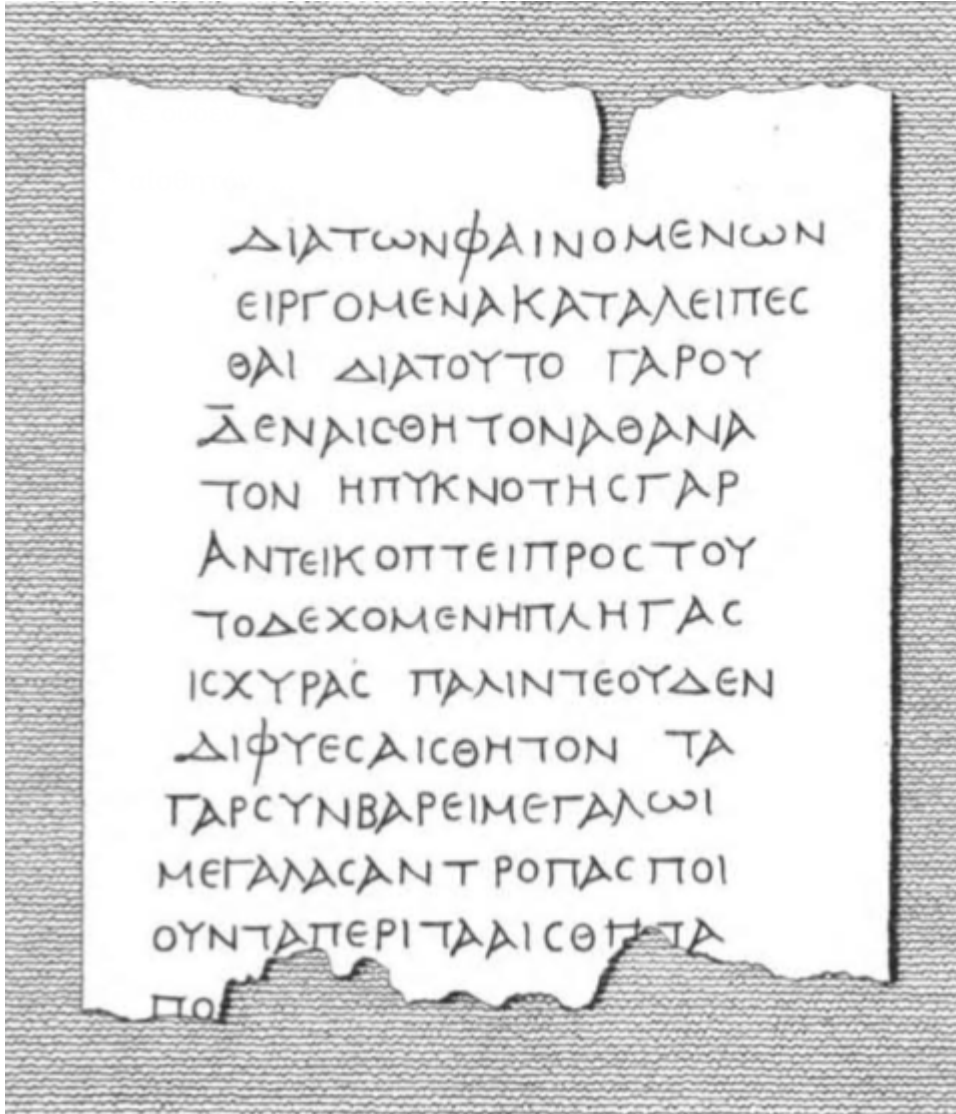 ΔΙΑΤΩΝΦΑΙΝΟΜΕΝΩΝ
ΕΙΡΓΟΜΕΝΑΚΑΤΑΛΕΙΠΕϹ
ΘΑΙ ΔΙΑΤΟΥΤΟ ΓΑΡΟΥ
ΔΕΝΑΙϹΘΗΤΟΝΑΘΑΝΑ
ΤΟΝ ΗΠΥΚΝΟΤΗϹΓΑΡ
ΑΝΤΕΙΚΟΠΤΕΙΠΡΟϹΤΟΥ
ΤΟΔΕΧΟΜΕΝΗΠΛΗΓΑϹ
ΙϹΧΥΡΑϹ ΠΑΛΙΝΤΕΟΥΔΕΝ
ΔΙΦΥΕϹΑΙϹΘΗΤΟΝ ΤΑ
ΓΑΡϹΥΝΒΑΡΕΙΜΕΓΑΛΩΙ
ΜΕΓΑΛΑϹΑΝΤΡΟΠΑϹΠΟΙ
ΟΥΝΤΑΠΕΡΙΤΑΑΙϹΘΗΤΑ
ΠΟ